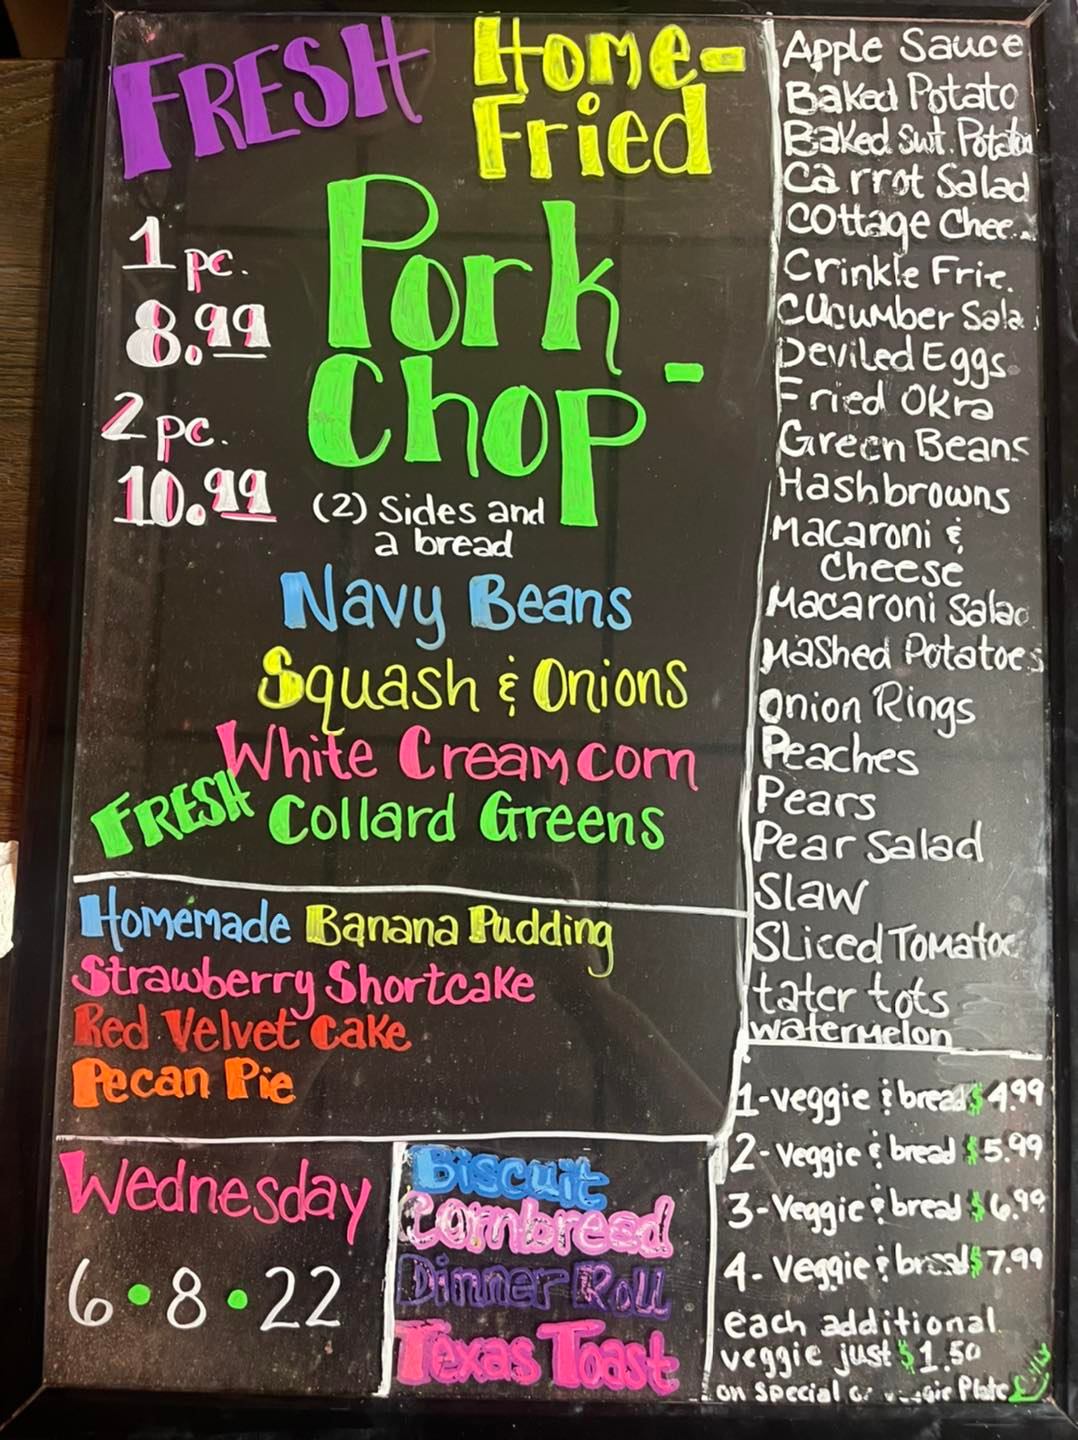 FRESH Home-
Fried
Pork
Chop -
1 pc.
8.99
2 pc.
10.99
(2) Sides and
a bread
Navy Beans
Squash & Onions
White Cream corn
FRESH Collard Greens
Homemade Banana Pudding
Strawberry Shortcake
Red Velvet Cake
Pecan Pie
Wednesday
6•8•22
Biscuit
Cornbread
Dinner Roll
Texas Toast
Apple Sauce
Baked Potato
Baked Swt. Potato
Carrot Salad
Cottage Chee
Crinkle Frie
Cucumber Sala
Deviled Eggs
Fried Okra
Green Beans
Hashbrowns
Macaroni &
Cheese
Macaroni Salad
Mashed Potatoes
Onion Rings
Peaches
Pears
Pear Salad
Slaw
Sliced Tomatoe
tater tots
watermelon
1-veggie & bread $4.99
2-veggie & bread $5.99
3-veggie & bread $6.99
4-veggie & bread $7.99
each additional
veggie just $1.50
on special or Plate